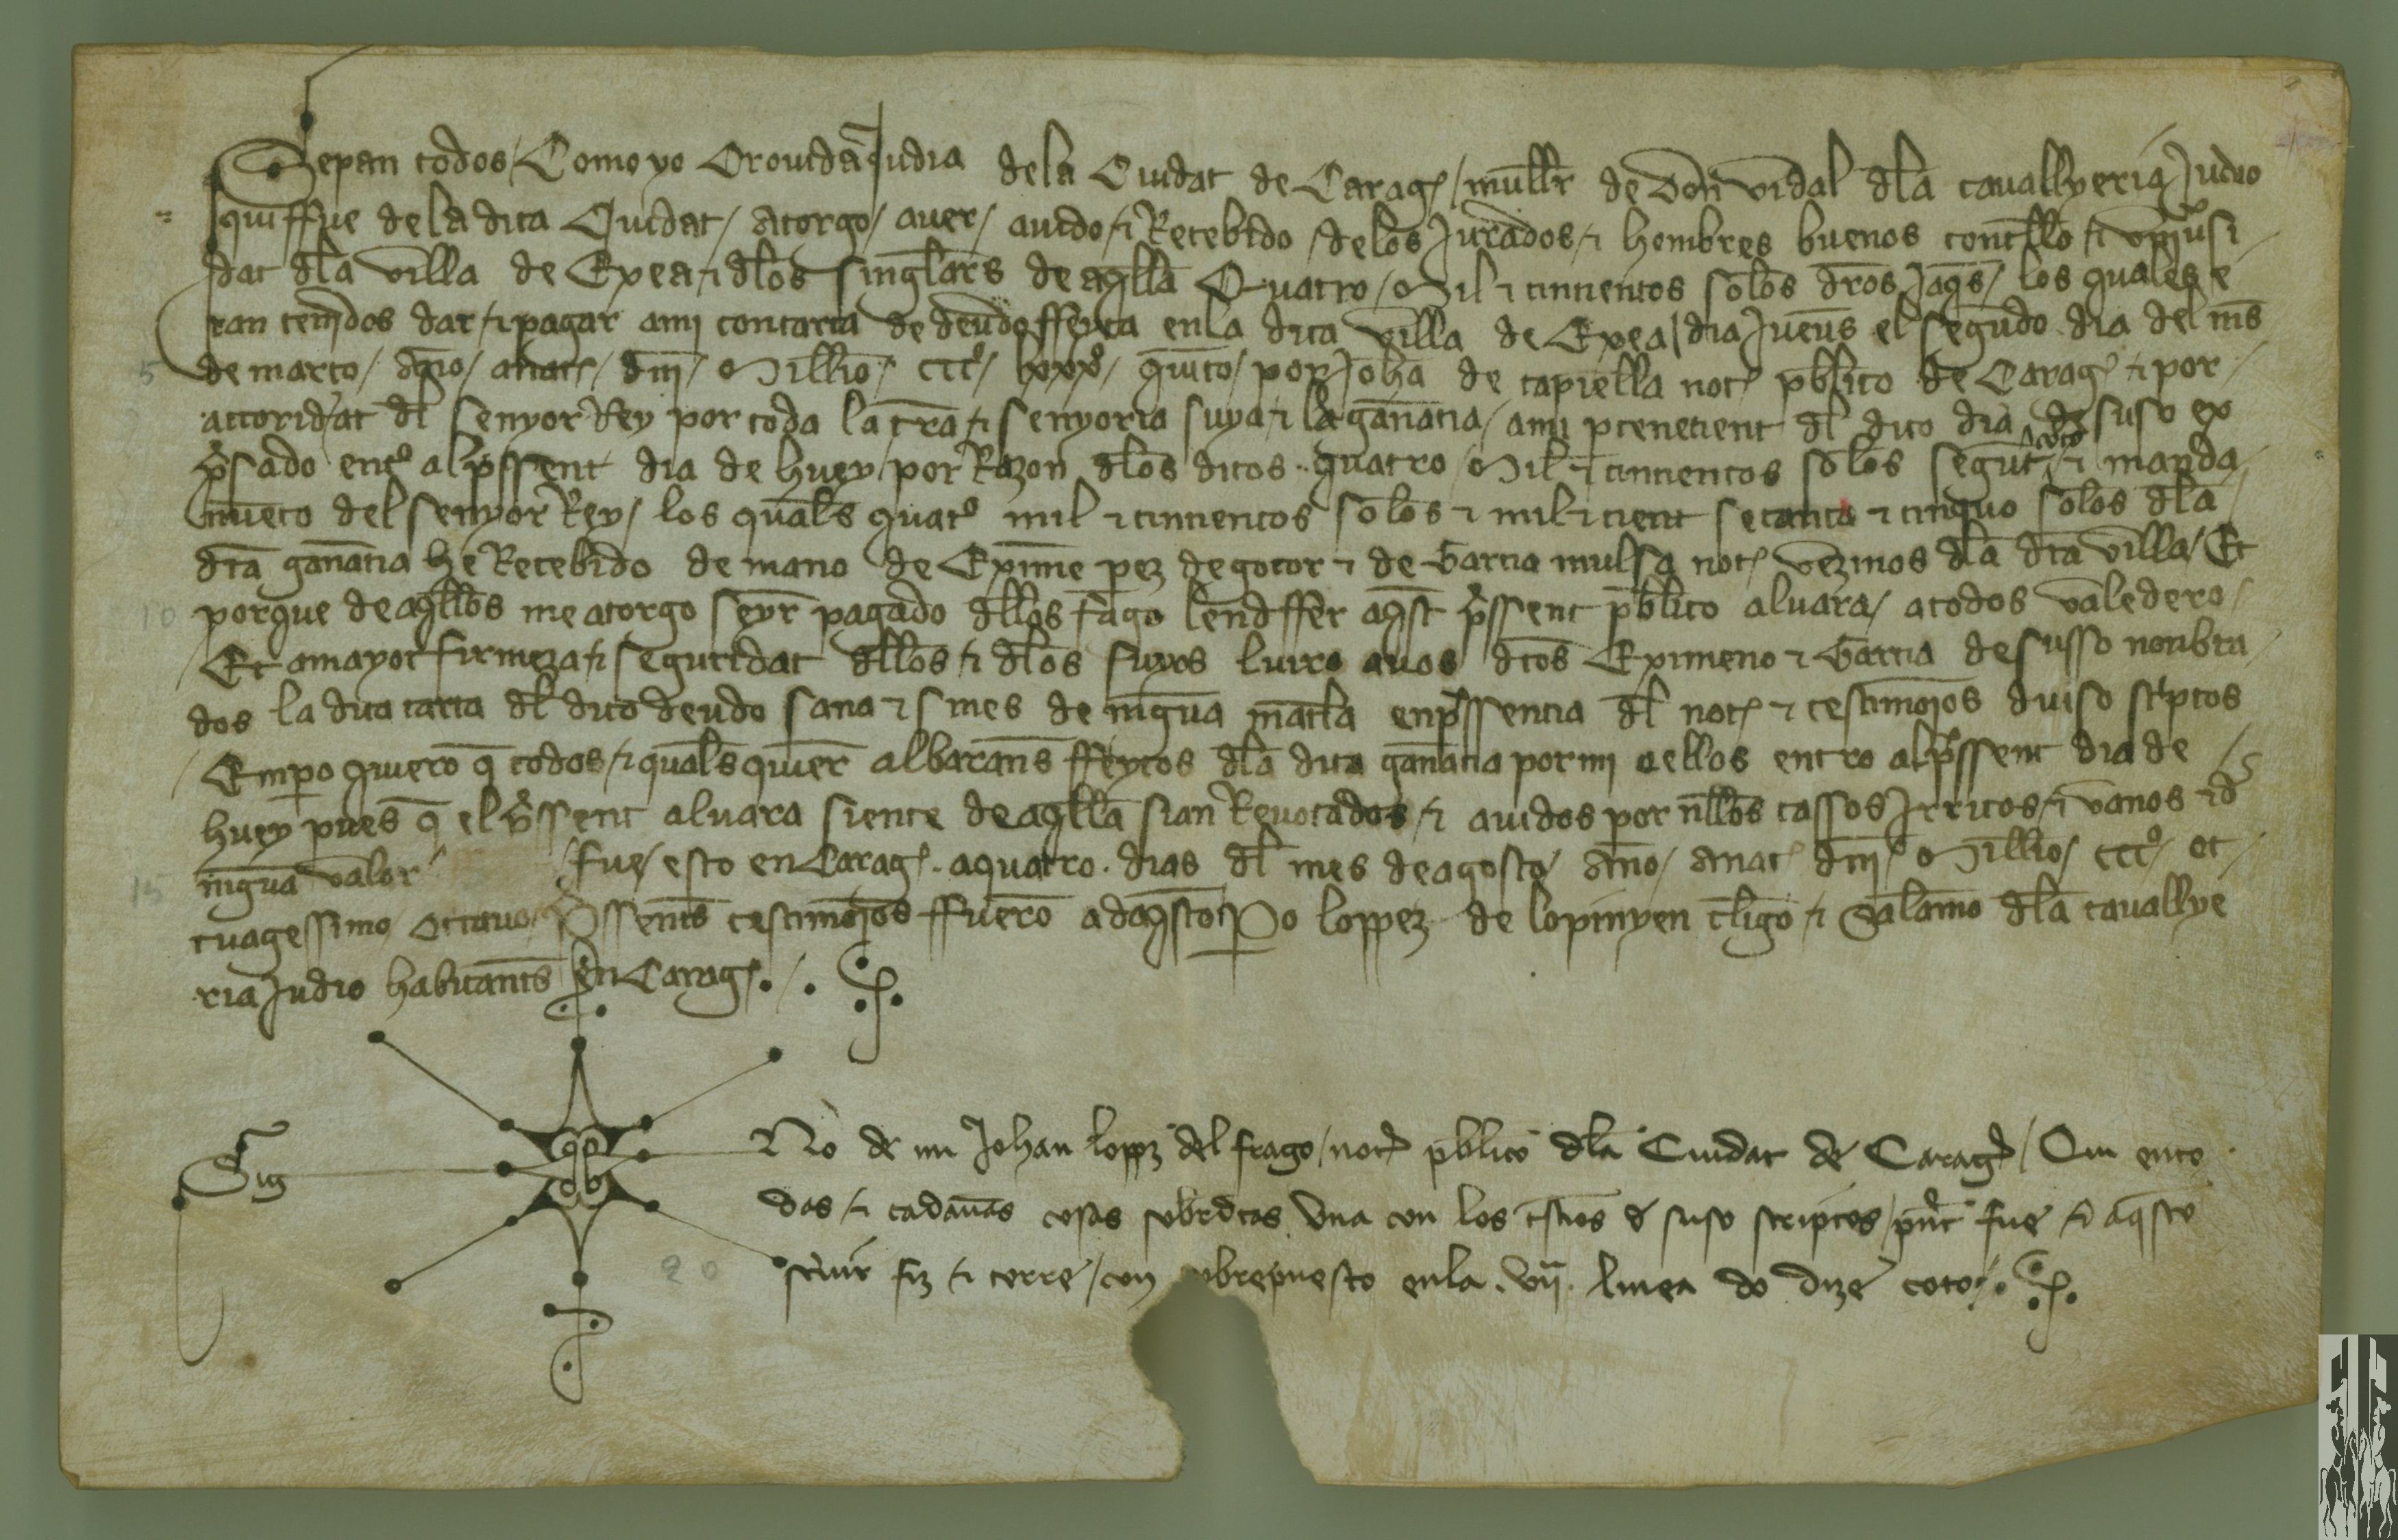 Sepan todos / Como yo Orouida Judia dela Ciudat de Carag / mullr de don vidal dla cauallyeria Judio
qui ffue dela dita Ciudat / atorgo / auer / auido / et Recebido / delos Jurados / et hombres buenos concello / et vniusi
dat dla villa de Exea / et dlos singlars de aqlla Quatro / Mil et cincientos solos dros Jaqs / los quales e
ran tenidos dar / et pagar ami contarta de deudo ffeyta enla dita villa de Exea / dia Jueus el segundo dia del ms
de marco / Ano / anat / dni / Millio / CCC / lxxx / quito / por Joha de capiella not pblico de Carag et por
actoridat dl senyor Rey por toda la tra / et senyoria suya / et la ganancia / ami ptenecient dl dito dia de suso ex
psado entº al pssent dia de huey / por Razon dlos ditos quatro / Mil et cincientos solos segut coto et manda
mieto del senyor Rey / los quals quatº mil et cincientos solos et mil et cient setanta et cinquo solos dla
dta ganancia he Recebido de mano de Exime pez de gotor et de Garcia mulsa not vezinos dla dta villa / Et
porque de aqllos me atorgo seyr pagado dllos fago lend ffer aqst pssent pblico aluara / atodos valedero /
Et amayor firmeza / et seguridat dllos et dlos suyos liuro auos dtos Eximeno et Garcia de susso nonbra
dos la dita carta dl dito deudo sana et sines de nigua macla enpssencia dl not et testimoios diuso scptos
Empo quiero q todos / et quals quier albarans ffeytos dla dita ganancia por mi aellos entro al pssent dia de
huey pues q el pssent aluara siente de aqlla sian Reuocados / et auidos por nllos cassos Irritos / et vanos et d
nigua valor / fue esto en Carag aquatro dias dl mes de agosto / Ano / anat dni / Millio / CCC / oc
tuagessimo octauo pssents testimoios ffuero adaqsto Po loppez de lopinyen cligo / et Salamo dla cauallye
ria Judio habitants en Carag
Sig No de mi Johan loppz del frago / not pblico dla Ciudat de Carag / Qui ento
das / et cadauas cosas sobrdtas vna con los tstios d suso scriptos / pnt fue / et aqsto
scriuir fiz / et cerre / con obrepuesto enla vij linea do dize coto
5
10
15
20